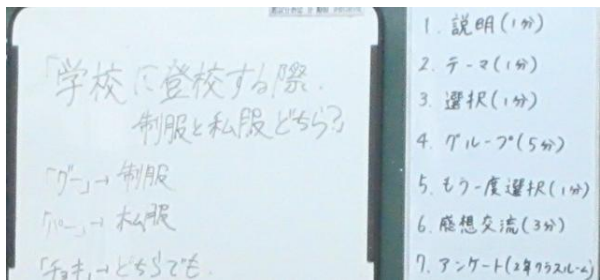 「学校に登校する際、
制服と私服どちら?」
「グー」→ 制服
「パー」→ 私服
「チョキ」→ どちらでも
1. 説明(1分)
2. テーマ(1分)
3. 選択(1分)
4. グループ(5分)
5. もう一度選択(1分)
6. 感想交流(3分)
7. アンケート(2年クラスルーム)